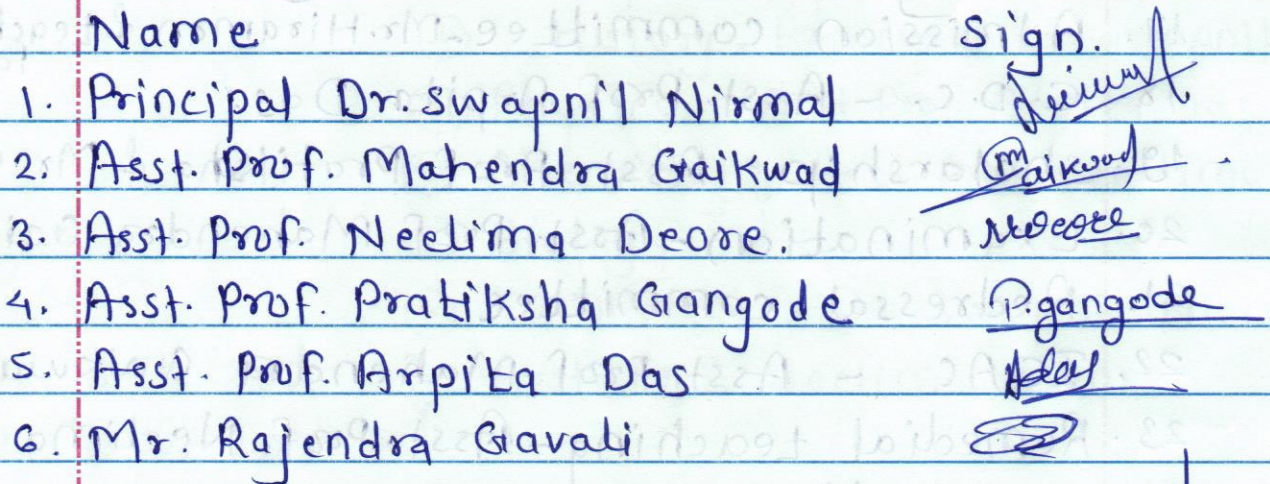 Name Sign.
1. Principal Dr. Swapnil Nirmal
2. Asst. Prof. Mahendra Gaikwad Gaikwad
3. Asst. Prof. Neelima Deore. NDeore
4. Asst. Prof. Pratiksha Gangode P.gangode
5. Asst. Prof. Arpita Das ADas
6. Mr. Rajendra Gavali